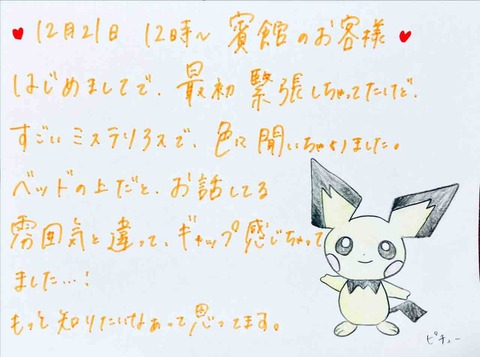 ♥ 12月21日 12時〜 賓館のお客様 ♥
はじめましてで、最初緊張しちゃってたけど、
すごいミステリアスで、色々聞いちゃいました。
ベッドの上だと、お話してる
雰囲気と違って、ギャップ感じちゃって
ました…!
もっと知りたいなぁって思ってます。
ピチュー